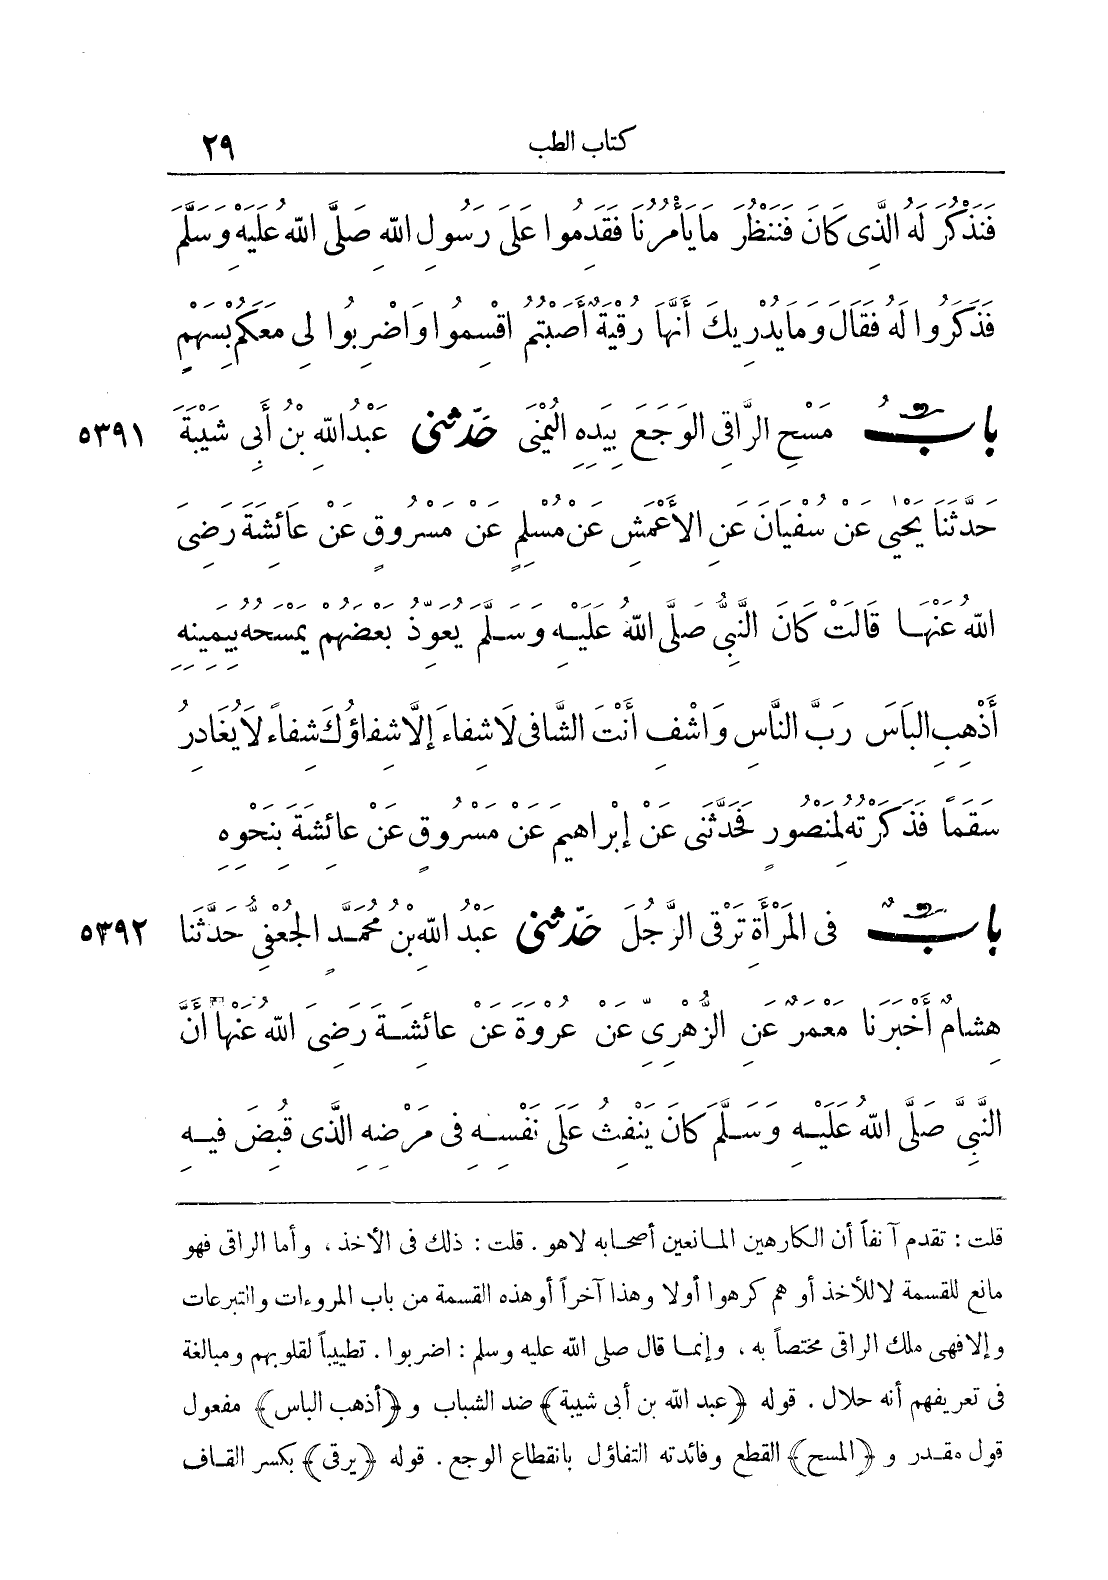 كتاب الطب ٢٩
فَنَذْكُرَ لَهُ الَّذِى كَانَ فَنَنْظُرَ مَا يَأْمُرُنَا فَقَدِمُوا عَلَى رَسُولِ اللهِ صَلَّى اللهُ عَلَيْهِ وَسَلَّمَ
فَذَكَرُوا لَهُ فَقَالَ وَمَا يُدْرِيكَ أَنَّهَا رُقْيَةٌ أَصَبْتُمْ اقْسِمُوا وَاضْرِبُوا لِى مَعَكُمْ بِسَهْمٍ
بابُ مَسْحِ الرَّاقِى الوَجَعَ بِيَدِهِ اليُمْنَى حَدَّثَنِى عَبْدُ اللهِ بْنُ أَبِى شَيْبَةَ ٥٣٩١
حَدَّثَنَا يَحْيَى عَنْ سُفْيَانَ عَنِ الأَعْمَشِ عَنْ مُسْلِمٍ عَنْ مَسْرُوقٍ عَنْ عَائِشَةَ رَضِىَ
اللهُ عَنْهَا قَالَتْ كَانَ النَّبِىُّ صَلَّى اللهُ عَلَيْهِ وَسَلَّمَ يُعَوِّذُ بَعْضَهُمْ يَمْسَحُهُ بِيَمِينِهِ
أَذْهِبِ البَاسَ رَبَّ النَّاسِ وَاشْفِ أَنْتَ الشَّافِى لَا شِفَاءَ إِلَّا شِفَاؤُكَ شِفَاءً لَا يُغَادِرُ
سَقَمًا فَذَكَرْتُهُ لِمَنْصُورٍ فَحَدَّثَنِى عَنْ إِبْرَاهِيمَ عَنْ مَسْرُوقٍ عَنْ عَائِشَةَ بِنَحْوِهِ
بابٌ فِى المَرْأَةِ تَرْقِى الرَّجُلَ حَدَّثَنِى عَبْدُ اللهِ بْنُ مُحَمَّدٍ الجُعْفِىُّ حَدَّثَنَا ٥٣٩٢
هِشَامٌ أَخْبَرَنَا مَعْمَرٌ عَنِ الزُّهْرِىِّ عَنْ عُرْوَةَ عَنْ عَائِشَةَ رَضِىَ اللهُ عَنْهَا أَنَّ
النَّبِىَّ صَلَّى اللهُ عَلَيْهِ وَسَلَّمَ كَانَ يَنْفِثُ عَلَى نَفْسِهِ فِى مَرَضِهِ الَّذِى قُبِضَ فِيهِ
قلت : تقدم آنفاً أن الكارهين المانعين أصحابه لاهو . قلت : ذلك فى الأخذ ، وأما الراقى فهو
مانع للقسمة لا للأخذ أو هم كرهوا أولا وهذا آخراً أوهذه القسمة من باب المروءات والتبرعات
وإلا فهى ملك الراقى مختصاً به ، وإنما قال صلى الله عليه وسلم : اضربوا . تطييباً لقلوبهم ومبالغة
فى تعريفهم أنه حلال . قوله ﴿عبد الله بن أبى شيبة﴾ ضد الشباب و ﴿أذهب الباس﴾ مفعول
قول مقدر و ﴿المسح﴾ القطع وفائدته التفاؤل بانقطاع الوجع . قوله ﴿يرقى﴾ بكسر القاف